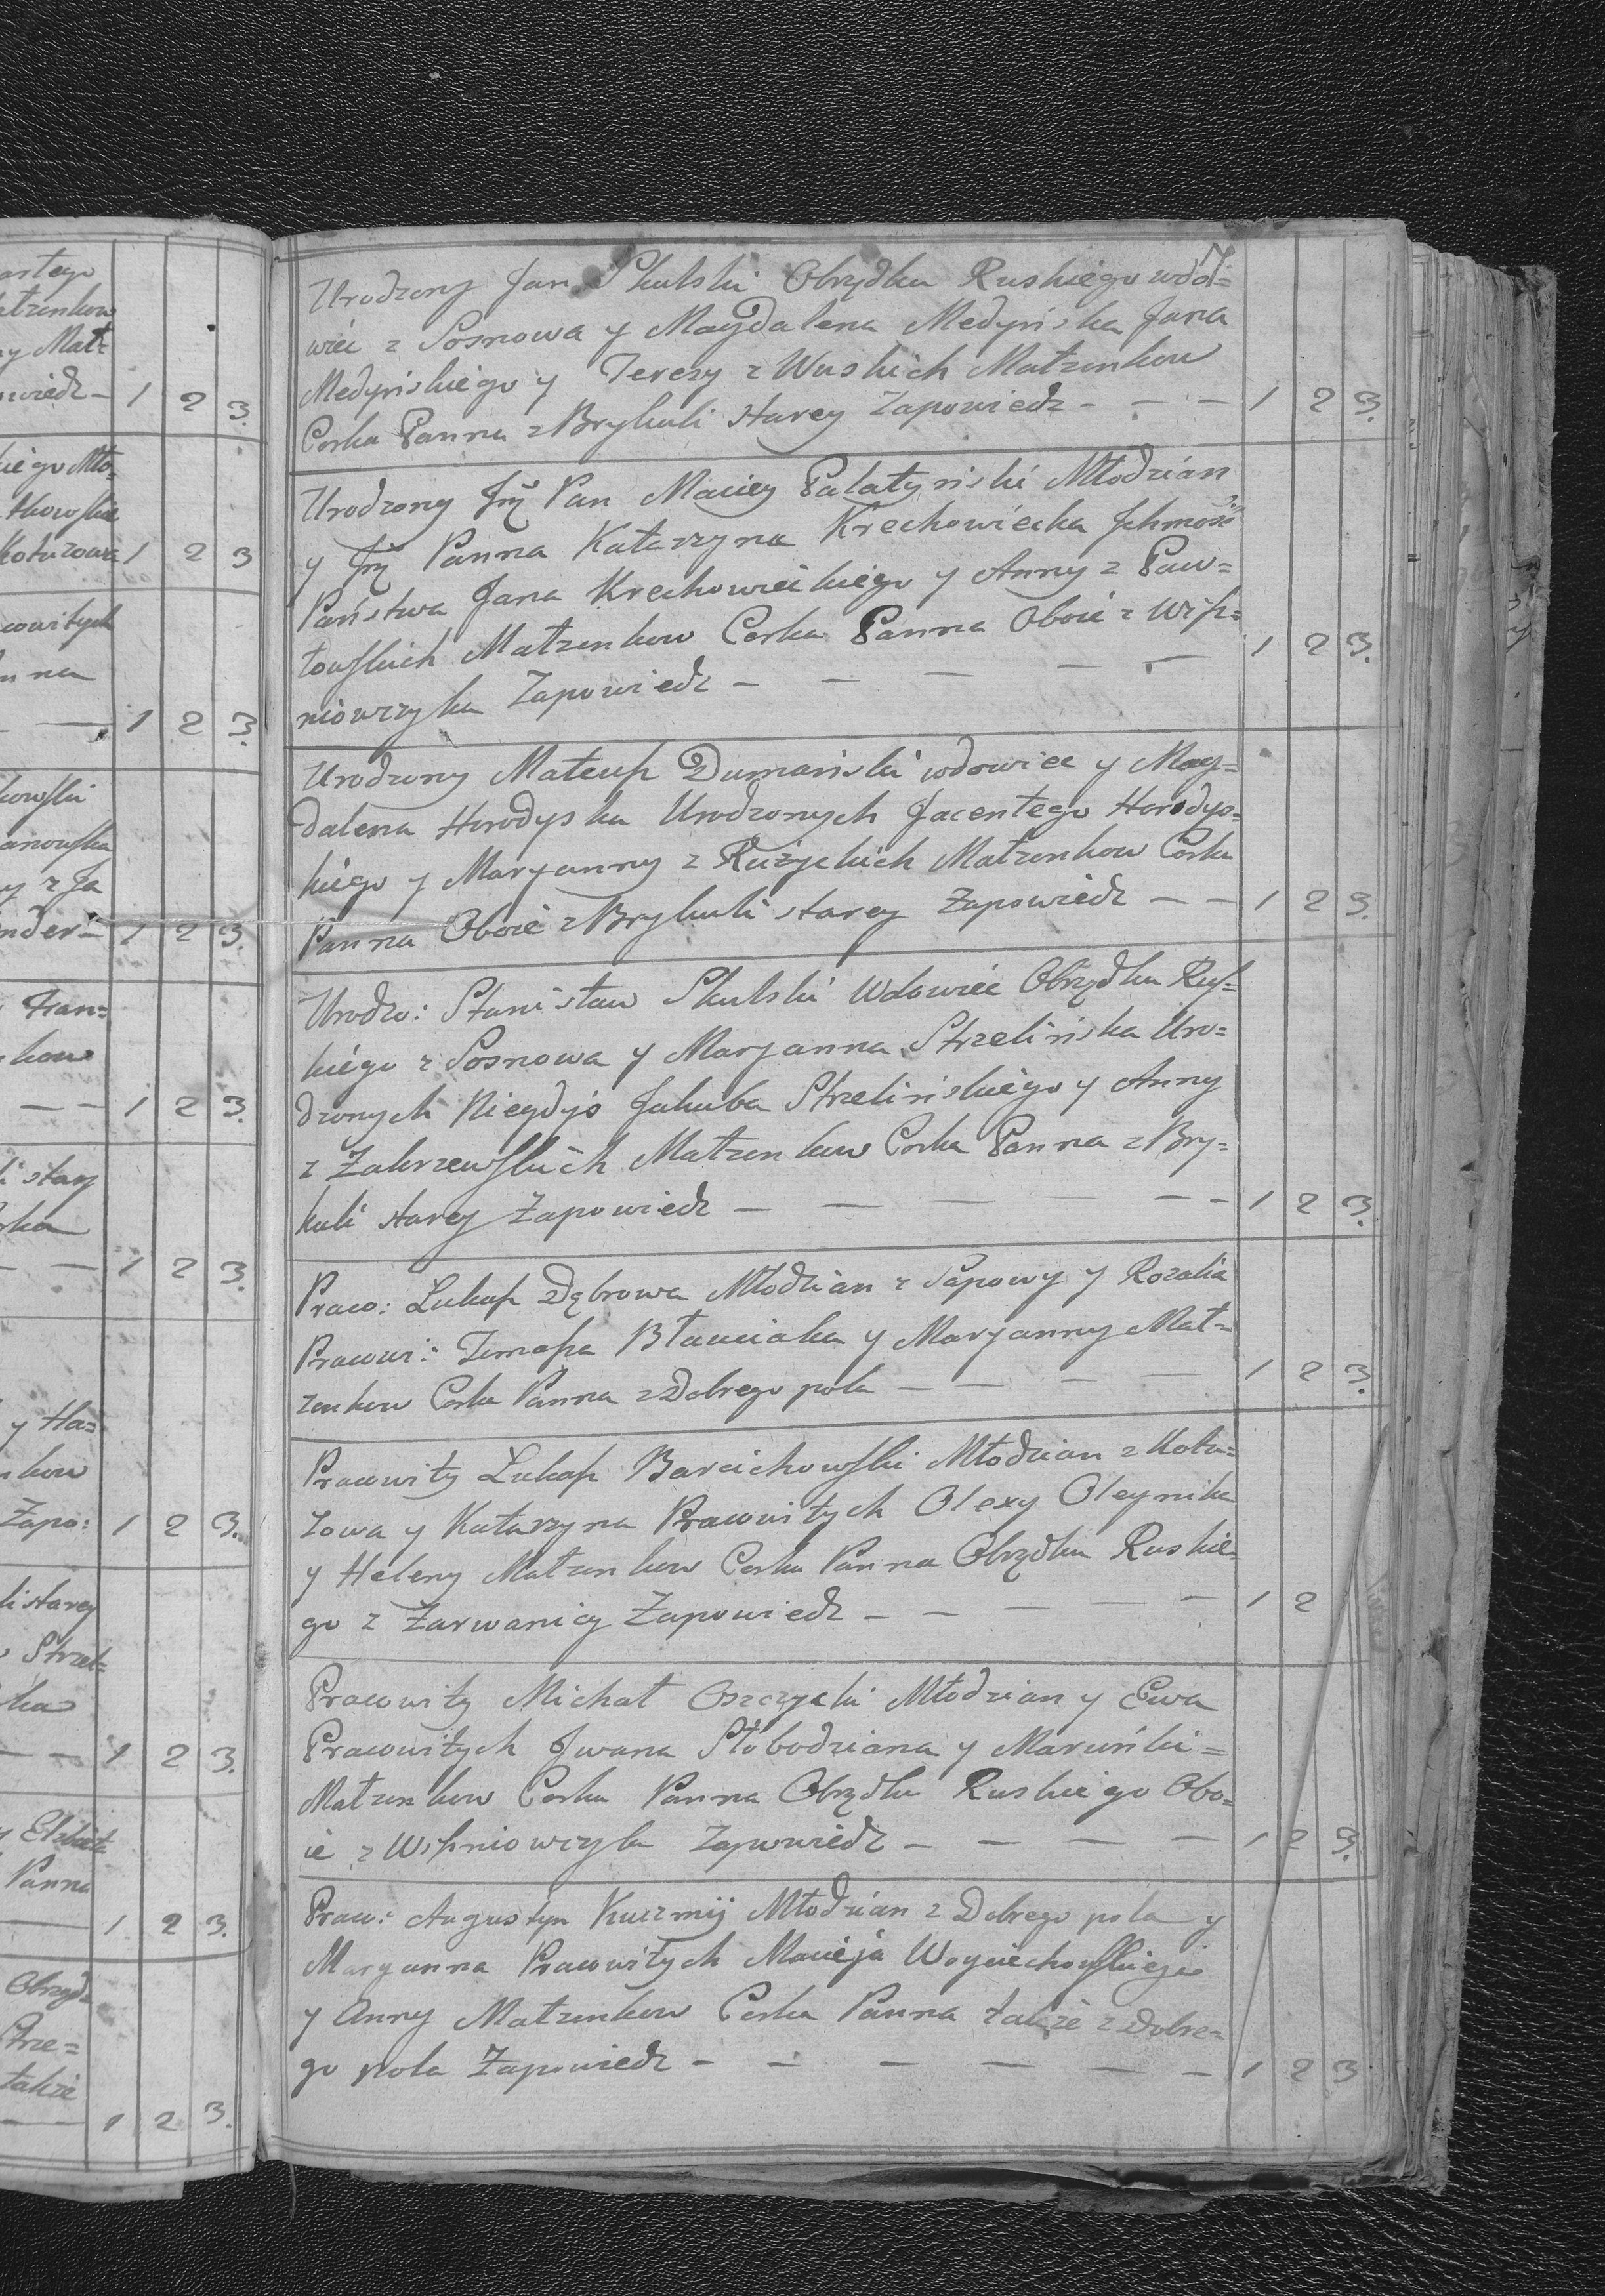 artego
atzenkow
y Mał=
owiedz – 1 2 3.
kiego Mło=
tkowskie
Kotuzowa 1 2 3
cowitych
nna
— 1 2 3.
kowski
anowska
y z Ja
nder– 1 2 3.
Fran=
kow
— — 1 2 3.
i stary
rka
— — 1 2 3.
y Ha=
nkow
Zapo: 1 2 3.
li starey
Strzel=
ka
— — 1 2 3.
y Elzbieta
Panna
— 1 2 3.
Obrząd=
Strze=
także
— 1 2 3.
Urodzony Jan Skulski Obrządku Ruskiego wdo=
wiec z Sosnowa y Magdalena Medyńska Jana
Medyńskiego y Terezy z Wuskich Małzenkow
Corka Panna z Brykuli starey Zapowiedz – – – 1 2 3.
Urodzony Jmć Pan Maciey Pałatyński Młodzian
y Jmć Panna Katarzyna Krechowiecka Jchmość
Państwa Jana Krechowieckiego y Anny z Paw=
łowskich Małzenkow Corka Panna Oboie z Wisz=
niowczyka Zapowiedz – – – – – 1 2 3.
Urodzony Mateusz Dumański wdowiec y Mag=
dalena Horodyska Urodzonych Jacentego Horodys=
kiego y Maryanny z Rużyckich Małzenkow Corka
Panna Oboie z Brykuli starey Zapowiedz – – 1 2 3.
Urodzo: Stanisław Skulski Wdowiec Obrządku Rus=
kiego z Sosnowa y Maryanna Strzelińska Uro=
dzonych Niegdyś Jakuba Strzelińskiego y Anny
z Zakrzewskich Małzenkow Corka Panna z Bry=
kuli starey Zapowiedz – – – – – – 1 2 3.
Praw: Łukasz Dąbrowa Młodzian z Sapowy y Rozalia
Prawwi: Tomasza Bławciaka y Maryanny Mał=
zenkow Corka Panna z Dobrego pola – – – – 1 2 3.
Prawwity Łukasz Barcichowski Młodzian z Kotu=
zowa y Katarzyna Prawwitych Olexy Oleynika
y Heleny Małzenkow Corka Panna Obrządku Ruskie=
go z Zarwanicy Zapowiedz – – – – – 1 2
Prawwity Michał Oszczycki Młodzian y Ewa
Prawwitych Jwana Słobodziana y Maruńki =
Małzenkow Corka Panna Obrządku Ruskiego Obo=
ie z Wiszniowczyka Zapowiedz – – – – 1 2 3.
Praw: Augustyn Kuczmij Młodzian z Dobrego pola y
Maryanna Prawwitych Macieja Woyciechowskiego
y Anny Małzenkow Corka Panna także z Dobre=
go pola Zapowiedz – – – – – – 1 2 3